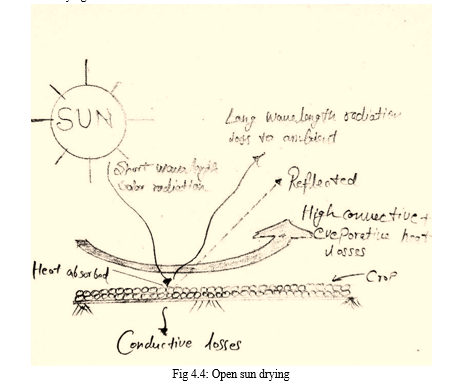 SUN
Long wavelength radiation
loss to ambient
Short wavelength
solar radiation
Reflected
High convective +
evaporative heat
losses
Heat absorbed
Crop
Conductive losses
Fig 4.4: Open sun drying